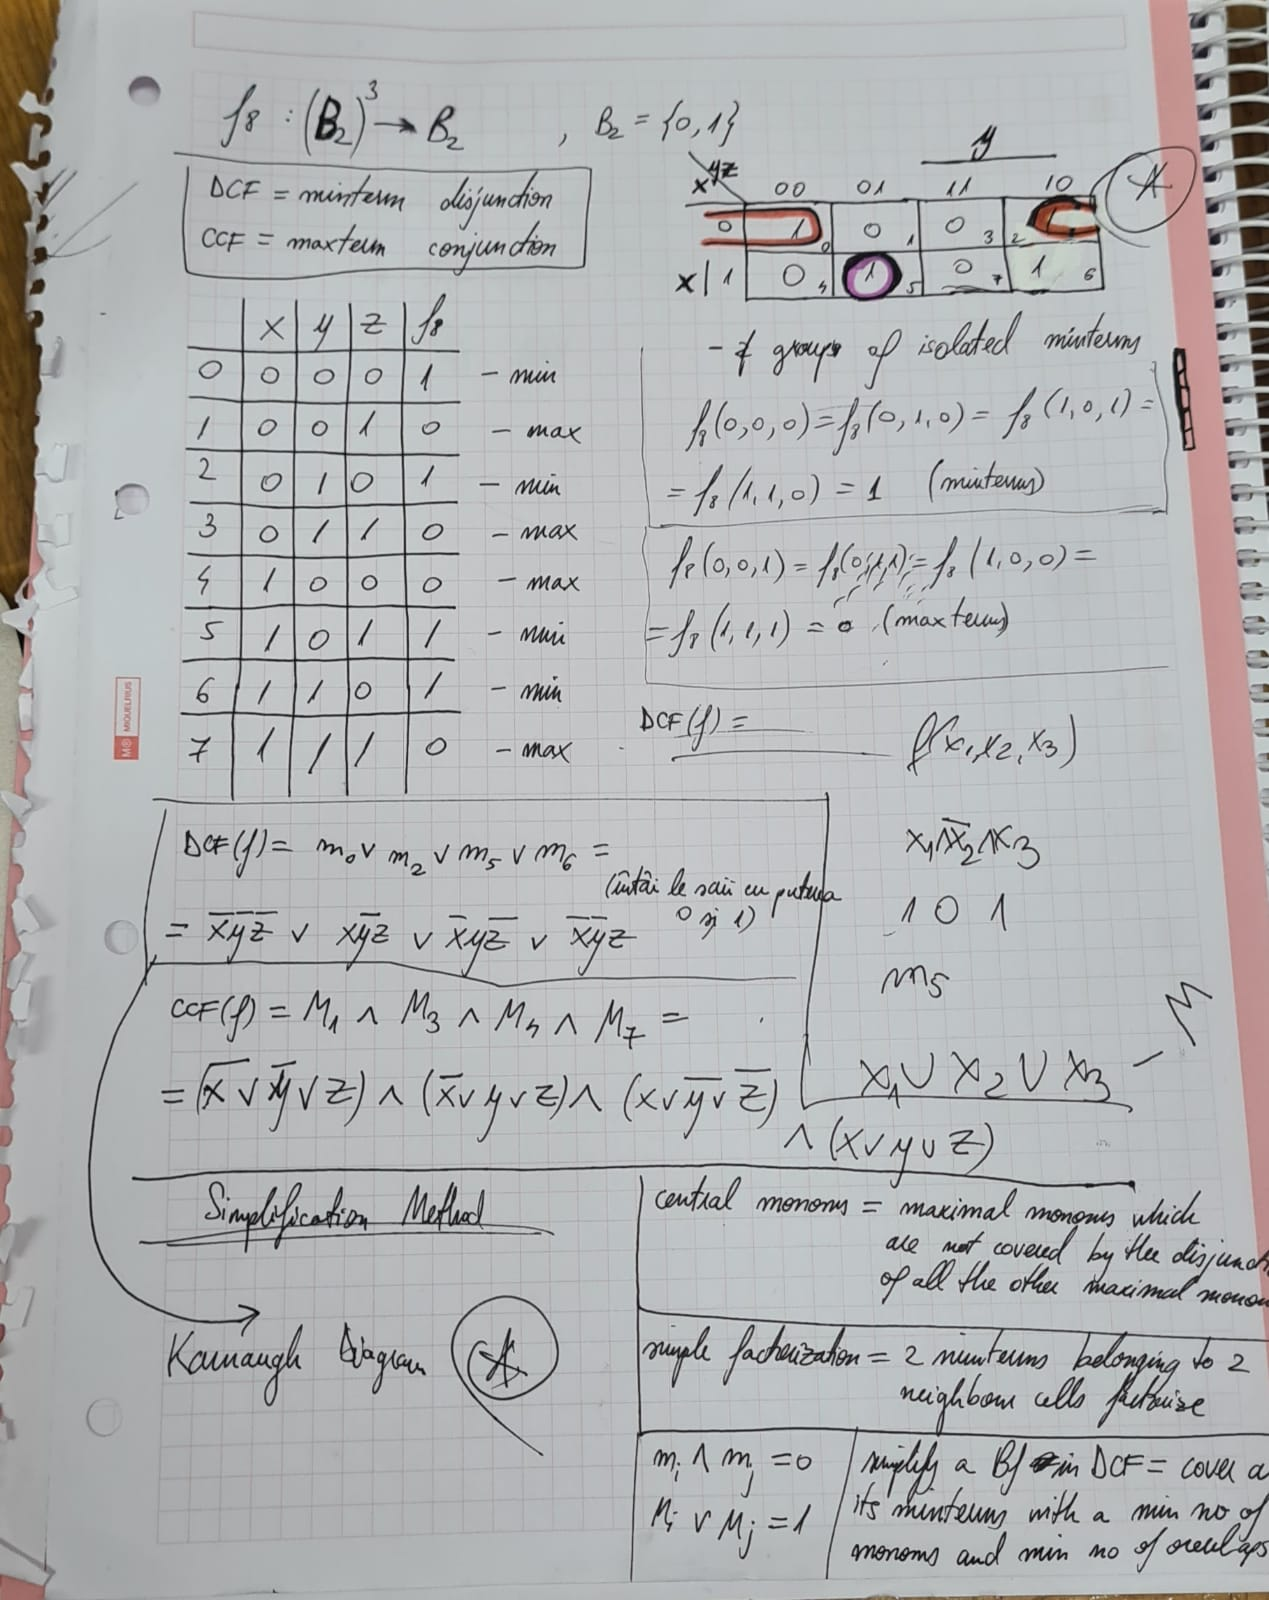 f8 : (B₂)³ → B₂ , B₂ = {0, 1}
DCF = minterm disjunction
CCF = maxterm conjunction
y
x\yz 00 01 11 10
0 1 0 0 0 1 0 3 2
x | 1 0 4 1 5 0 7 1 6
A
x y z f8
0 0 0 0 1 - min
1 0 0 1 0 - max
2 0 1 0 1 - min
3 0 1 1 0 - max
4 1 0 0 0 - max
5 1 0 1 1 - min
6 1 1 0 1 - min
7 1 1 1 0 - max
- ∄ groups of isolated minterms
f8(0,0,0) = f8(0,1,0) = f8(1,0,1) =
= f8(1,1,0) = 1 (minterms)
f8(0,0,1) = f8(0,1,1) = f8(1,0,0) =
= f8(1,1,1) = 0 (maxterms)
DCF(f) =
f(x₁,x₂,x₃)
M® MIQUELRIUS
DCF(f) = m₀ ∨ m₂ ∨ m₅ ∨ m₆ =
(întâi le scrii cu puterea
0 și 1)
= x̄ȳz̄ ∨ xȳz ∨ x̄yz̄ ∨ x̄ȳz
x₁∧x̄₂∧x₃
1 0 1
m₅
CCF(f) = M₁ ∧ M₃ ∧ M₄ ∧ M₇ =
= (x̄ ∨ ȳ ∨ z) ∧ (x̄ ∨ y ∨ z) ∧ (x ∨ ȳ ∨ z̄)
∧ (x ∨ y ∨ z)
x₁ ∪ x₂ ∪ x₃ - M
Simplification Method
Karnaugh Diagram
A
central monoms = maximal monoms which
are not covered by the disjunct
of all the other maximal monom
simple factorization = 2 minterms belonging to 2
neighbour cells factorize
mᵢ ∧ mⱼ = 0
Mᵢ ∨ Mⱼ = 1
simplify a Bf in DCF = cover a
its minterms with a min no of
monoms and min no of overlaps